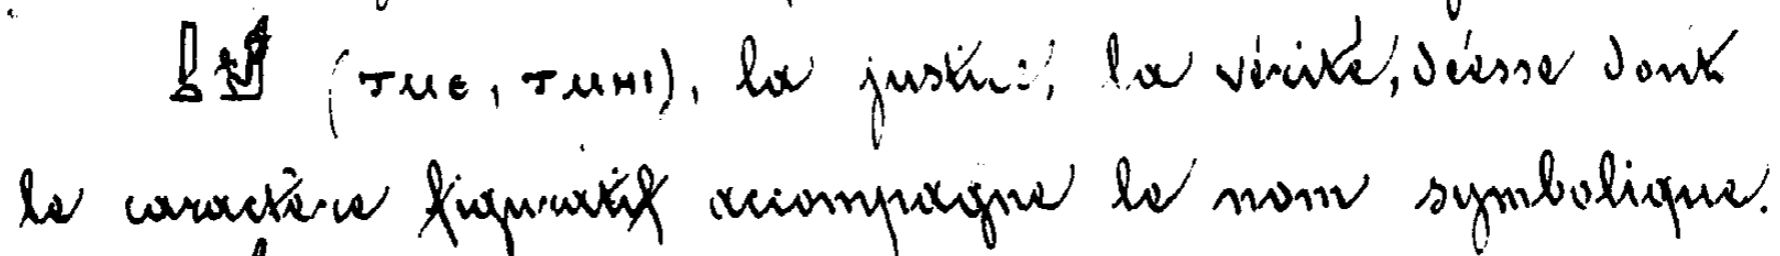 (ⲧⲙⲉ, ⲧⲙⲏⲓ), la justice, la vérité, déesse dont
le caractère figuratif accompagne le nom symbolique.